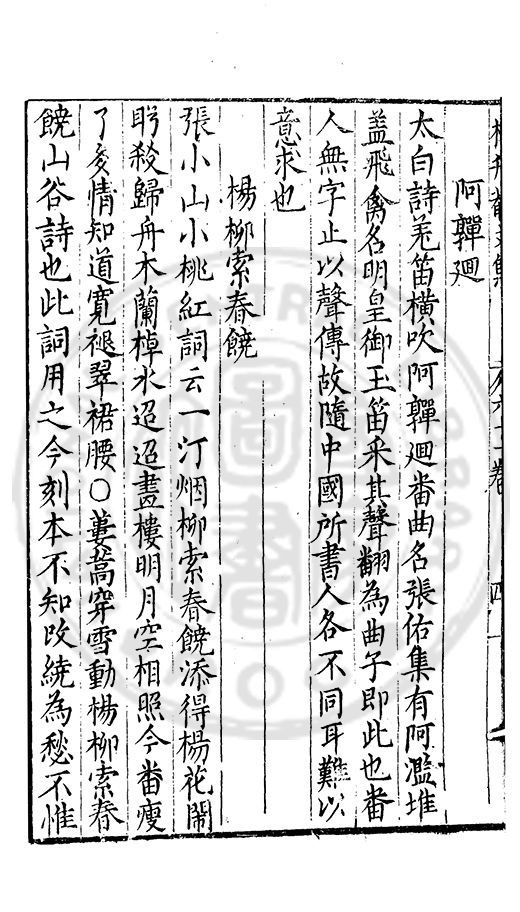 阿嚲廻
太白詩羌笛横吹阿嚲廻畨曲名張佑集有阿濫堆
盖飛禽名明皇御玉笛采其聲翻為曲子即此也畨
人無字止以聲傳故隨中國所書人各不同耳難以
意求也
楊柳索春饒
張小山小桃紅詞云一汀烟柳索春饒添得楊花鬧
盻殺歸舟木蘭棹水迢迢畫樓明月空相照今畨瘦
了多情知道寛褪翠裙腰○蔞蒿穿雪動楊柳索春
饒山谷詩也此詞用之今刻本不知改饒為愁不惟